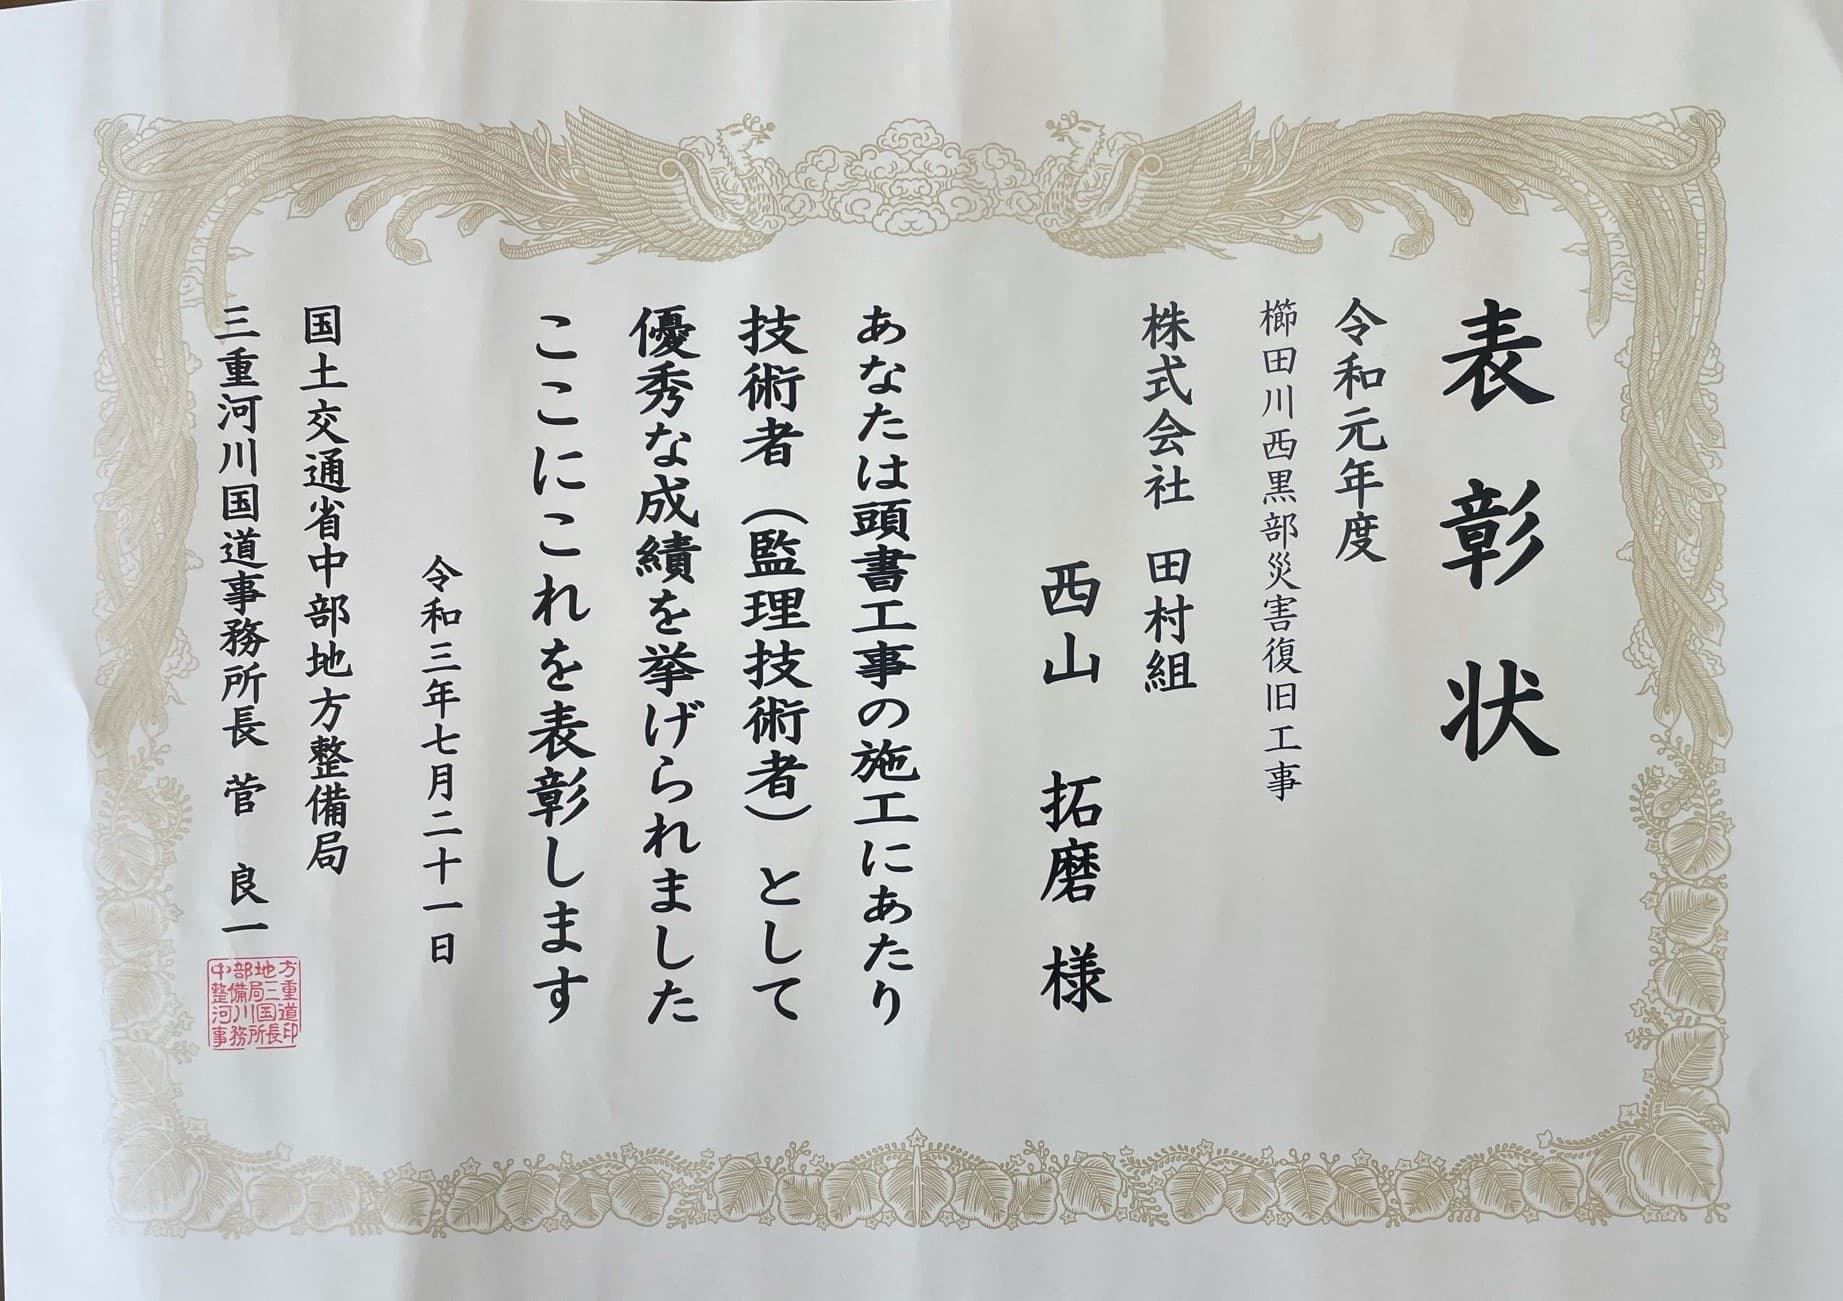 表彰状
令和元年度
櫛田川西黒部災害復旧工事
株式会社 田村組
西山 拓磨 様
あなたは頭書工事の施工にあたり
技術者（監理技術者）として
優秀な成績を挙げられました
ここにこれを表彰します
令和三年七月二十一日
国土交通省中部地方整備局
三重河川国道事務所長 菅 良一
中部地方
整備局三重
河川国道
事務所長印